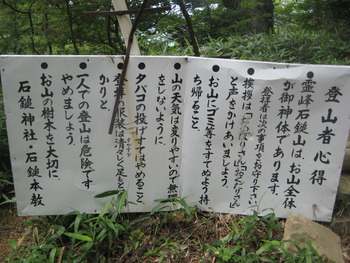 登山者心得
●霊峰石鎚山は、お山全体
が御神体であります。
登拝者は次の事項をお守り下さい
●挨拶は「お登りさん」「お下りさん」
と声をかけあいましょう。
●お山にゴミ等をすてぬよう持
ち帰ること。
●山の天気は変り易いので無理
をしないように。
●タバコの投げすてはやめること。
●登拝の服装は清らしく足もと
かりと。
●一人での登山は危険です
やめましょう。
●お山の樹木を大切に。
石鎚神社・石鎚本教